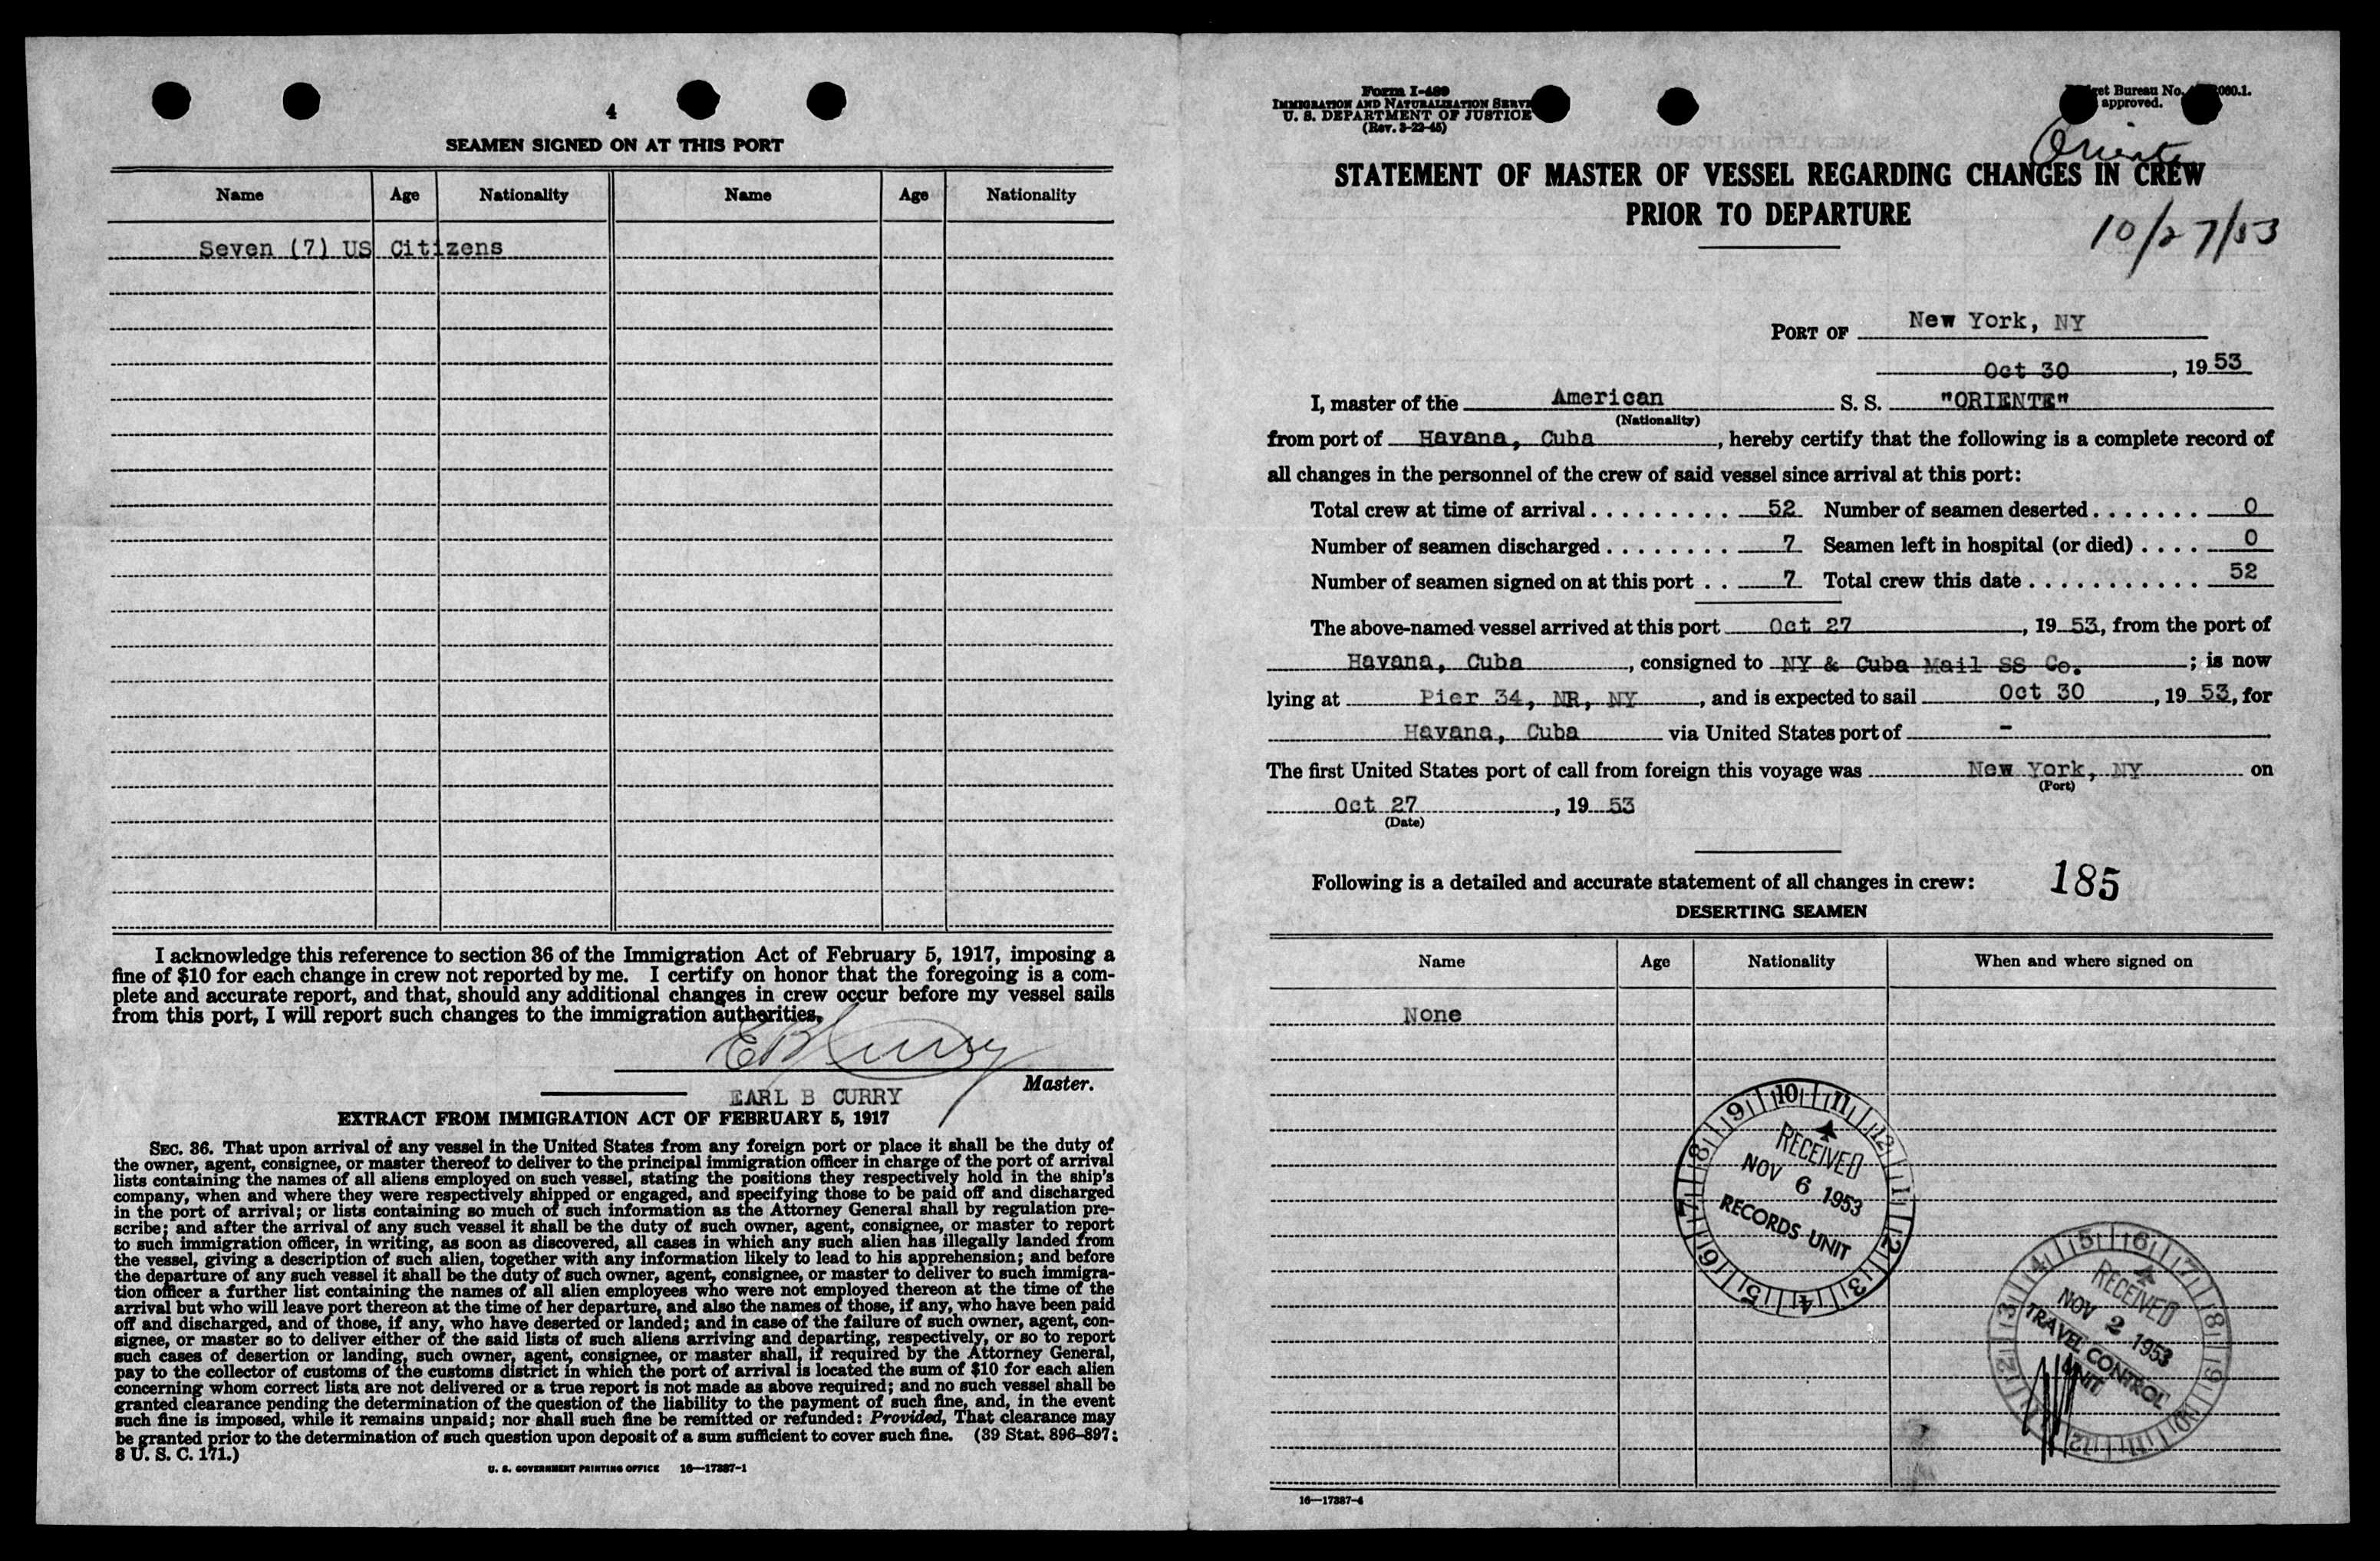 4
SEAMEN SIGNED ON AT THIS PORT
Name Age Nationality Name Age Nationality
Seven (7) US Citizens
I acknowledge this reference to section 36 of the Immigration Act of February 5, 1917, imposing a
fine of $10 for each change in crew not reported by me. I certify on honor that the foregoing is a com-
plete and accurate report, and that, should any additional changes in crew occur before my vessel sails
from this port, I will report such changes to the immigration authorities.
E B Curry
Master.
EARL B CURRY
EXTRACT FROM IMMIGRATION ACT OF FEBRUARY 5, 1917
SEC. 36. That upon arrival of any vessel in the United States from any foreign port or place it shall be the duty of
the owner, agent, consignee, or master thereof to deliver to the principal immigration officer in charge of the port of arrival
lists containing the names of all aliens employed on such vessel, stating the positions they respectively hold in the ship's
company, when and where they were respectively shipped or engaged, and specifying those to be paid off and discharged
in the port of arrival; or lists containing so much of such information as the Attorney General shall by regulation pre-
scribe; and after the arrival of any such vessel it shall be the duty of such owner, agent, consignee, or master to report
to such immigration officer, in writing, as soon as discovered, all cases in which any such alien has illegally landed from
the vessel, giving a description of such alien, together with any information likely to lead to his apprehension; and before
the departure of any such vessel it shall be the duty of such owner, agent, consignee, or master to deliver to such immigra-
tion officer a further list containing the names of all alien employees who were not employed thereon at the time of the
arrival but who will leave port thereon at the time of her departure, and also the names of those, if any, who have been paid
off and discharged, and of those, if any, who have deserted or landed; and in case of the failure of such owner, agent, con-
signee, or master so to deliver either of the said lists of such aliens arriving and departing, respectively, or so to report
such cases of desertion or landing, such owner, agent, consignee, or master shall, if required by the Attorney General,
pay to the collector of customs of the customs district in which the port of arrival is located the sum of $10 for each alien
concerning whom correct lists are not delivered or a true report is not made as above required; and no such vessel shall be
granted clearance pending the determination of the question of the liability to the payment of such fine, and, in the event
such fine is imposed, while it remains unpaid; nor shall such fine be remitted or refunded: Provided, That clearance may
be granted prior to the determination of such question upon deposit of a sum sufficient to cover such fine. (39 Stat. 896–897;
8 U. S. C. 171.)
U. S. GOVERNMENT PRINTING OFFICE 16—17387-1
Form I-489
IMMIGRATION AND NATURALIZATION SERVI
U. S. DEPARTMENT OF JUSTICE
(Rev. 3-22-45)
get Bureau No. 060.1.
approved.
Oriente
STATEMENT OF MASTER OF VESSEL REGARDING CHANGES IN CREW
PRIOR TO DEPARTURE
10/27/53
PORT OF New York, NY
Oct 30, 1953
I, master of the American S. S. "ORIENTE"
(Nationality)
from port of Havana, Cuba, hereby certify that the following is a complete record of
all changes in the personnel of the crew of said vessel since arrival at this port:
Total crew at time of arrival 52 Number of seamen deserted 0
Number of seamen discharged 7 Seamen left in hospital (or died) 0
Number of seamen signed on at this port 7 Total crew this date 52
The above-named vessel arrived at this port Oct 27, 1953, from the port of
Havana, Cuba, consigned to NY & Cuba Mail SS Co.; is now
lying at Pier 34, NR, NY, and is expected to sail Oct 30, 1953, for
Havana, Cuba via United States port of -
The first United States port of call from foreign this voyage was New York, NY on
(Port)
Oct 27, 1953
(Date)
Following is a detailed and accurate statement of all changes in crew: 185
DESERTING SEAMEN
Name Age Nationality When and where signed on
None
10 11 12 1 2 3 4 5 6 7 8 9
RECEIVED
NOV 6 1953
RECORDS UNIT
5 6 7 8 9 10 11 12 1 2 3 4
RECEIVED
NOV 2 1953
TRAVEL CONTROL
UNIT
16—17387-4